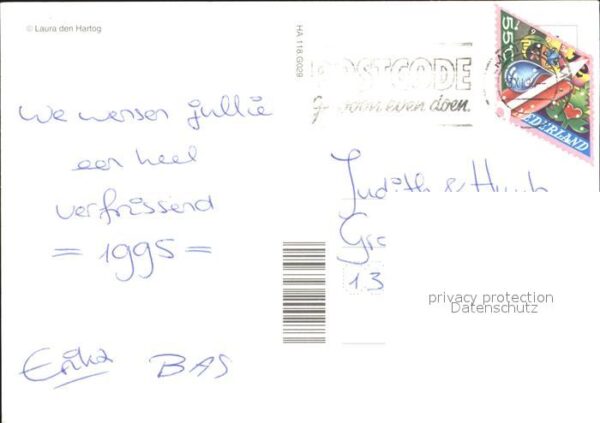 © Laura den Hartog
HA 118 G029
POSTCODE
gewoon even doen.
55c
NEDERLAND
We wensen jullie
een heel
verfrissend
= 1995 =
Erika BAS
Judith &
Gr
13
privacy protection
Datenschutz